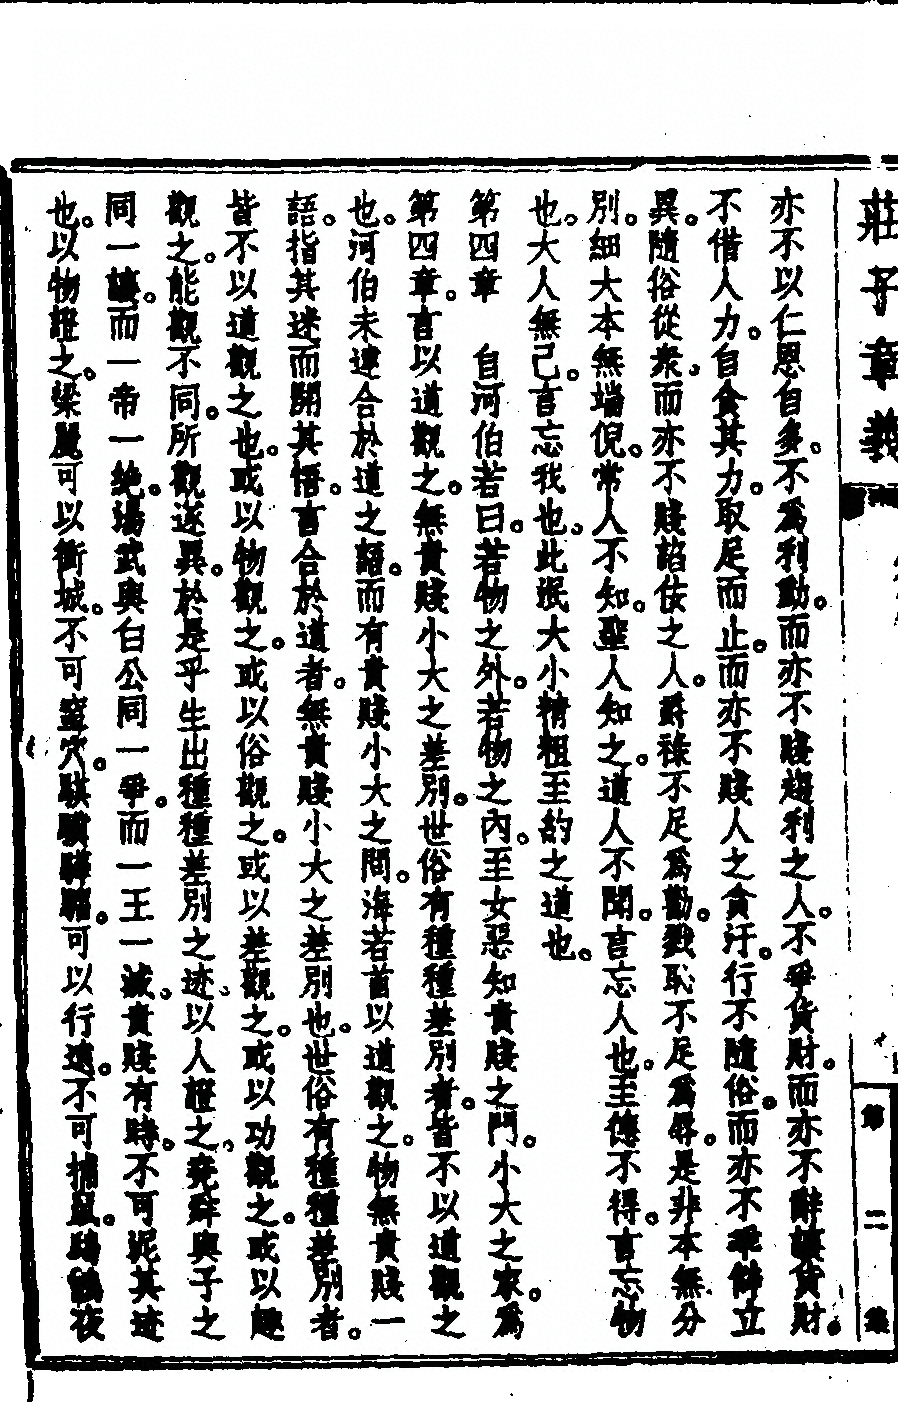 莊子章義
第二集
亦不以仁恩自多。不爲利動。而亦不賤趨利之人。不爭貨財。而亦不辭讓貨財。
不借人力。自食其力。取足而止。而亦不賤人之貪汙。行不隨俗。而亦不乖僻立
異。隨俗從衆。而亦不賤諂佞之人。爵祿不足爲勸。戮恥不足爲辱。是非本無分
別。細大本無端倪。常人不知。聖人知之。道人不聞。言忘人也。至德不得。言忘物
也。大人無己。言忘我也。此泯大小精粗至約之道也。
第四章　自河伯若曰。若物之外。若物之內。至女惡知貴賤之門。小大之家。爲
第四章。言以道觀之。無貴賤小大之差別。世俗有種種差別者。皆不以道觀之
也。河伯未達合於道之語。而有貴賤小大之問。海若首以道觀之。物無貴賤一
語。指其迷而開其悟。言合於道者。無貴賤小大之差別也。世俗有種種差別者。
皆不以道觀之也。或以物觀之。或以俗觀之。或以差觀之。或以功觀之。或以趣
觀之。能觀不同。所觀遂異。於是乎生出種種差別之迹。以人證之。堯舜與子之
同一讓。而一帝一絶。湯武與白公同一爭。而一王一滅。貴賤有時。不可泥其迹
也。以物證之。梁麗可以衝城。不可窒穴。騏驥驊騮。可以行遠。不可捕鼠。鴟鵂夜